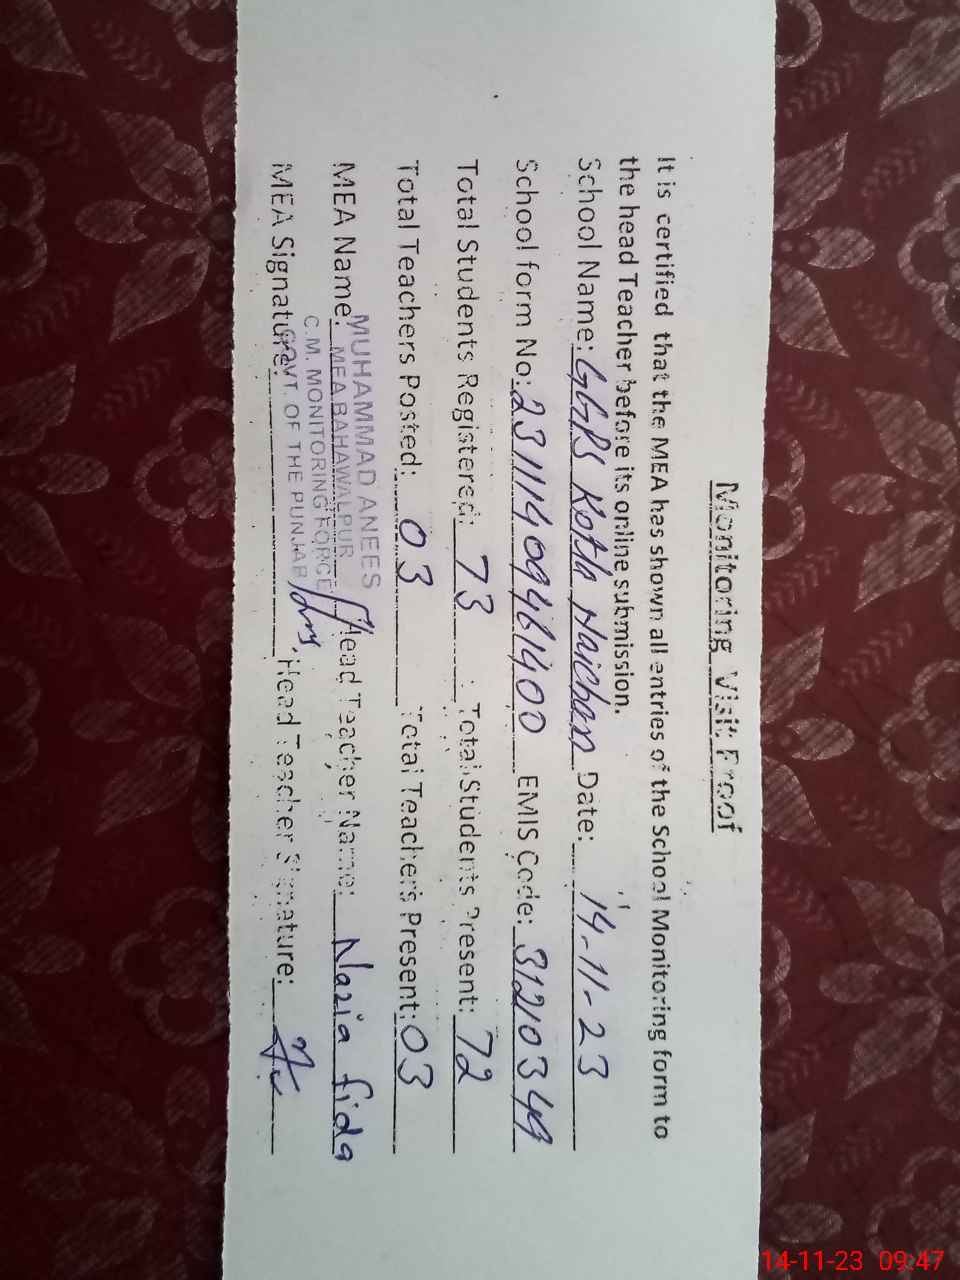 Monitoring Visit Proof
It is certified that the MEA has shown all entries of the School Monitoring form to
the head Teacher before its online submission.
School Name: GGPS Kotla Haichan Date: 14-11-23
School form No: 23111409461400 EMIS Code: 31210349
Total Students Registered: 73 Total Students Present: 72
Total Teachers Posted: 03 Total Teachers Present: 03
MUHAMMAD ANEES
MEA Name: MEA BAHAWALPUR Head Teacher Name: Nazia fida
C.M. MONITORING FORCE
GOVT. OF THE PUNJAB
MEA Signature: Head Teacher Signature:
14-11-23 09:47